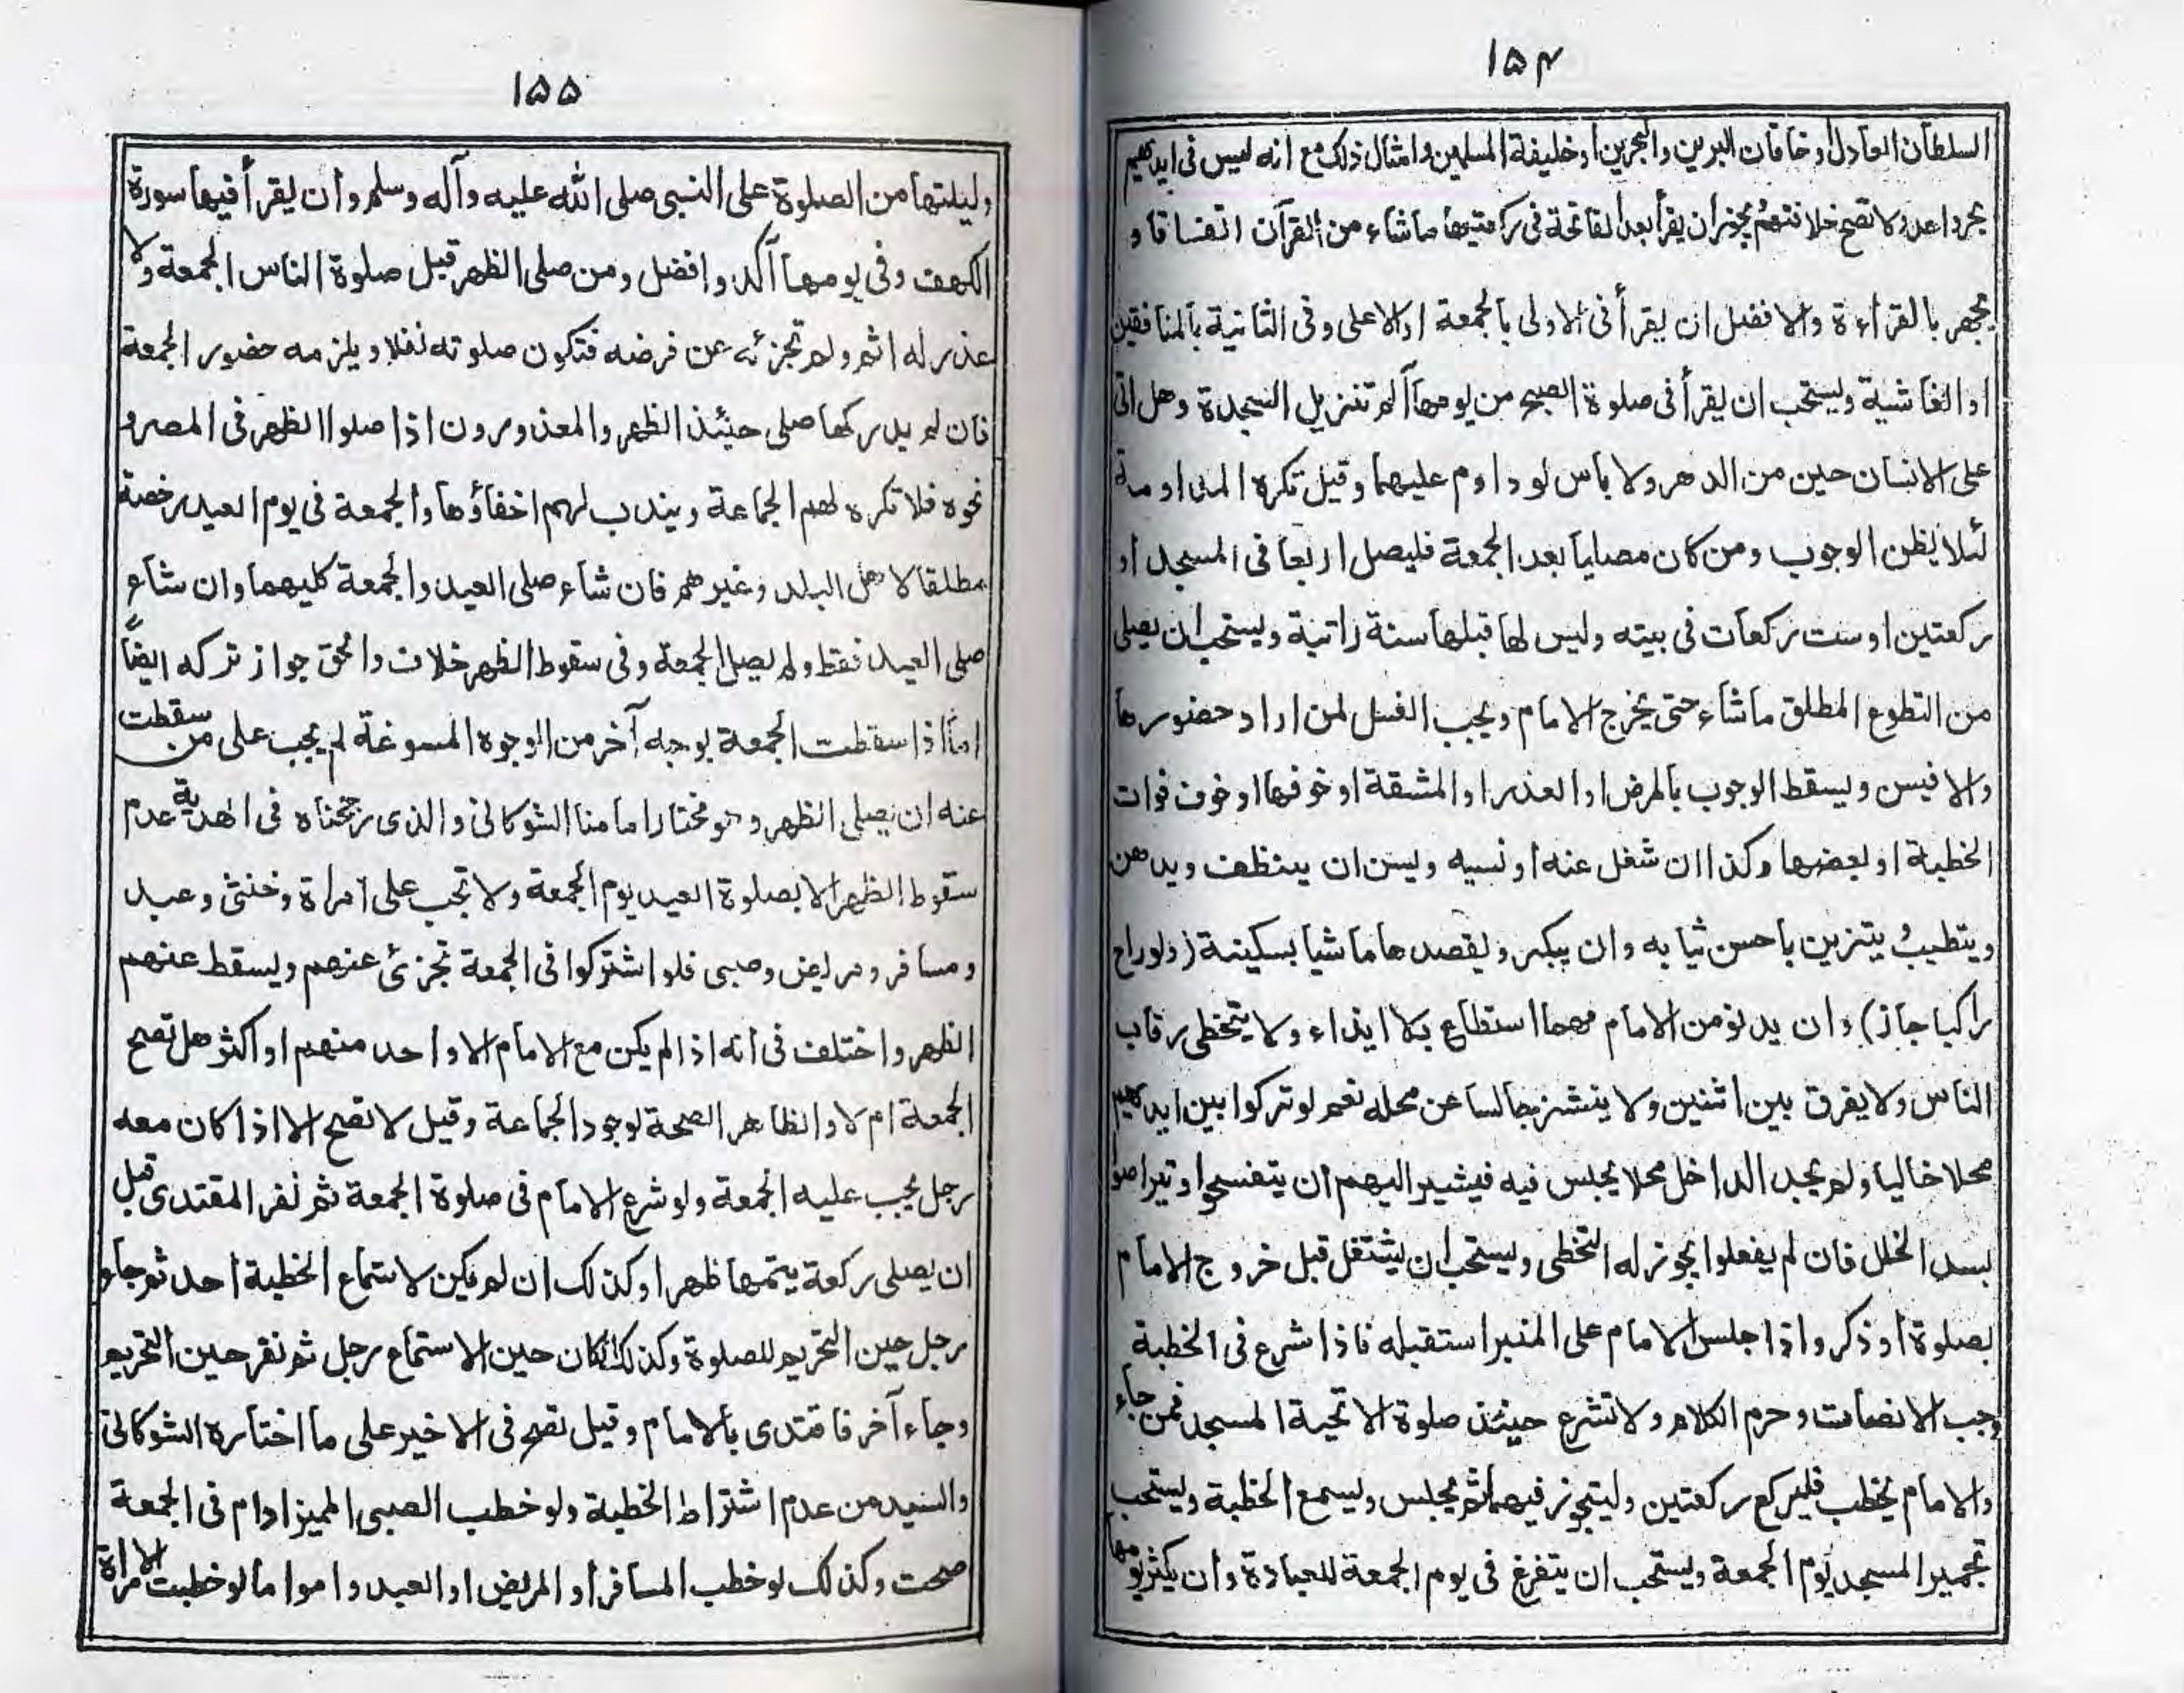 ١٥٤
السلطان العادل او خاقان البرين والبحرين او خليفة المسلمين وامثال ذلك مع انه ليس فى ايديهم
بحر واحد ولا تصح خلافتهم يجوز ان يقرأ بعد الفاتحة فى ركعتيها ما شاء من القرآن اتفاقا و
يجهر بالقراءة والا فضل ان يقرأ فى الاولى بالجمعة او الاعلى وفى الثانية بالمنافقين
او الغاشية ويستحب ان يقرأ فى صلوة الصبح من يومها آلم تنزيل السجدة وهل اتى
على الانسان حين من الدهر ولا باس لو داوم عليهما وقيل تكره المداومة
لئلا يظن الوجوب ومن كان مصليا بعد الجمعة فليصل اربعا فى المسجد او
ركعتين او ست ركعات فى بيته وليس لها قبلها سنة راتبة ويستحب ان يصلى
من التطوع المطلق ما شاء حتى يخرج الامام ويجب الغسل لمن اراد حضورها
والا فيسن ويسقط الوجوب بالمرض او العذر او المشقة او خوفها او خوف فوات
الخطبة او بعضها وكذا ان شغل عنه او نسيه ويسن ان يتنظف ويدهن
ويتطيب يتزين باحسن ثيابه وان يبكر ويقصدها ماشيا بسكينة (ولو راح
راكبا جاز) وان يدنو من الامام مهما استطاع بلا ايذاء ولا يتخطى رقاب
الناس ولا يفرق بين اثنين ولا ينشز جالسا عن محله نعم لو تركوا بين ايديهم
محلا خاليا ولم يجد الداخل محلا يجلس فيه فيشير اليهم ان يتفسحوا او تيراصوا
لسد الخلل فان لم يفعلوا يجوز له التخطى ويستحب ان يشتغل قبل خروج الامام
بصلوة او ذكر واذا جلس الامام على المنبر استقبله فاذا شرع فى الخطبة
وجب الانصات وحرم الكلام ولا تشرع حينئذ صلوة الا تحية المسجد فمن جاء
والامام يخطب فليركع ركعتين وليتجوز فيهما ثم يجلس وليسمع الخطبة ويستحب
تجمير المسجد يوم الجمعة ويستحب ان يتفرغ فى يوم الجمعة للعبادة وان يكثر يومها
١٥٥
وليلتها من الصلوة على النبى صلى الله عليه وآله وسلم وان يقرأ فيها سورة
الكهف وفى يومها آكد وافضل ومن صلى الظهر قبل صلوة الناس الجمعة ولا
عذر له اثم ولم تجزئه عن فرضه فتكون صلوته نفلا ويلزمه حضور الجمعة
فان لم يدركها صلى حينئذ الظهر والمعذورون اذا صلوا الظهر فى المصر و
نحوه فلا تكره لهم الجماعة ويندب لهم اخفاؤها والجمعة فى يوم العيد رخصة
مطلقا لاهل البلد وغيرهم فان شاء صلى العيد والجمعة كليهما وان شاء
صلى العيد فقط ولم يصل الجمعة وفى سقوط الظهر خلاف والحق جواز تركه ايضاً
اما اذا سقطت الجمعة بوجه آخر من الوجوه المسوغة لم يجب على من سقطت
عنه ان يصلى الظهر وهو مختار امامنا الشوكانى والذى رجحناه فى الهدية عدم
سقوط الظهر الا بصلوة العيد يوم الجمعة ولا تجب على امراة وخنثى وعبد
ومسافر ومريض وصبى فلو اشتركوا فى الجمعة تجزئ عنهم ويسقط عنهم
الظهر واختلف فى انه اذا لم يكن مع الامام الا واحد منهم او اكثر هل تصح
الجمعة ام لا والظاهر الصحة لوجود الجماعة وقيل لا تصح الا اذا كان معه
رجل يجب عليه الجمعة ولو شرع الامام فى صلوة الجمعة ثم نفر المقتدى قبل
ان يصلى ركعة يتمها ظهرا وكذلك ان لم يكن لاستماع الخطبة احد ثم جاء
رجل حين التحريم للصلوة وكذلك لو كان حين الاستماع رجل ثم نفر حين التحريم
وجاء آخر فاقتدى بالامام وقيل تصح فى الاخير على ما اختاره الشوكانى
والسيد من عدم اشتراط الخطبة ولو خطب الصبى المميز او ام فى الجمعة
صحت وكذلك لو خطب المسافر او المريض او العبد وامواما لو خطبت الامراة